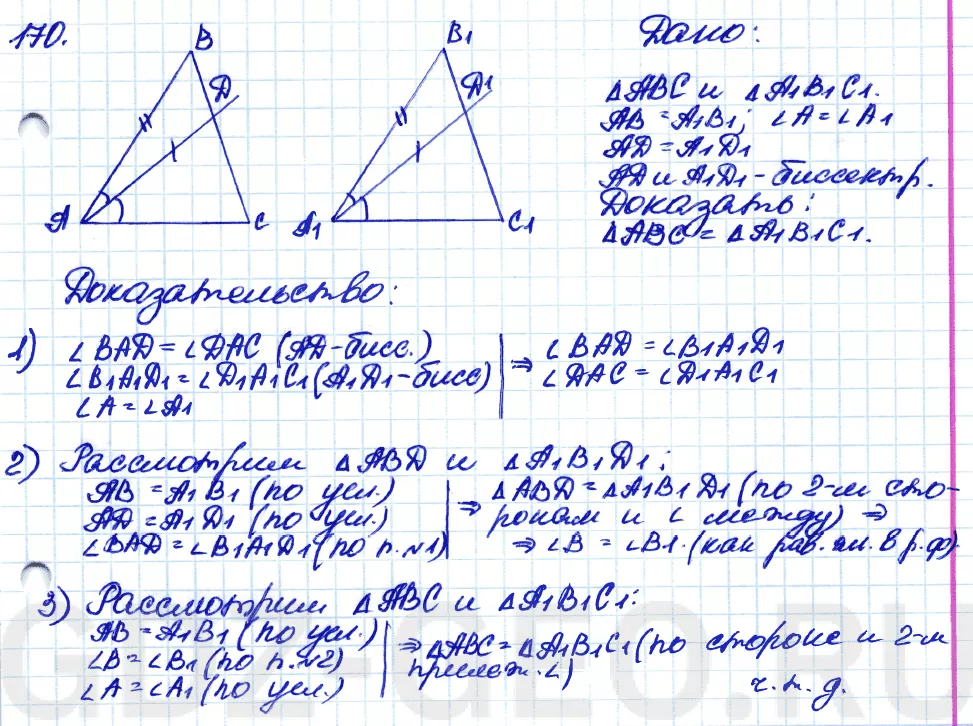 170.
B
D
A
C
B1
D1
A1
C1
Дано:
△ABC и △A1B1C1.
AB = A1B1; ∠A = ∠A1
AD = A1D1
AD и A1D1 - биссектр.
Доказать:
△ABC = △A1B1C1.
Доказательство:
1) ∠BAD = ∠DAC (AD - бисс.)
∠B1A1D1 = ∠D1A1C1 (A1D1 - бисс)
∠A = ∠A1
⇒ ∠BAD = ∠B1A1D1
∠DAC = ∠D1A1C1
2) Рассмотрим △ABD и △A1B1D1:
AB = A1B1 (по усл.)
AD = A1D1 (по усл.)
∠BAD = ∠B1A1D1 (по п.№1)
⇒ △ABD = △A1B1D1 (по 2-м сто-
ронам и ∠ между) ⇒
⇒ ∠B = ∠B1. (как рав. эл. в р.ф)
3) Рассмотрим △ABC и △A1B1C1:
AB = A1B1 (по усл.)
∠B = ∠B1 (по п.№2)
∠A = ∠A1 (по усл.)
⇒ △ABC = △A1B1C1 (по стороне и 2-м
прилеж. ∠)
ч.т.д.
GDZ-GEO.RU